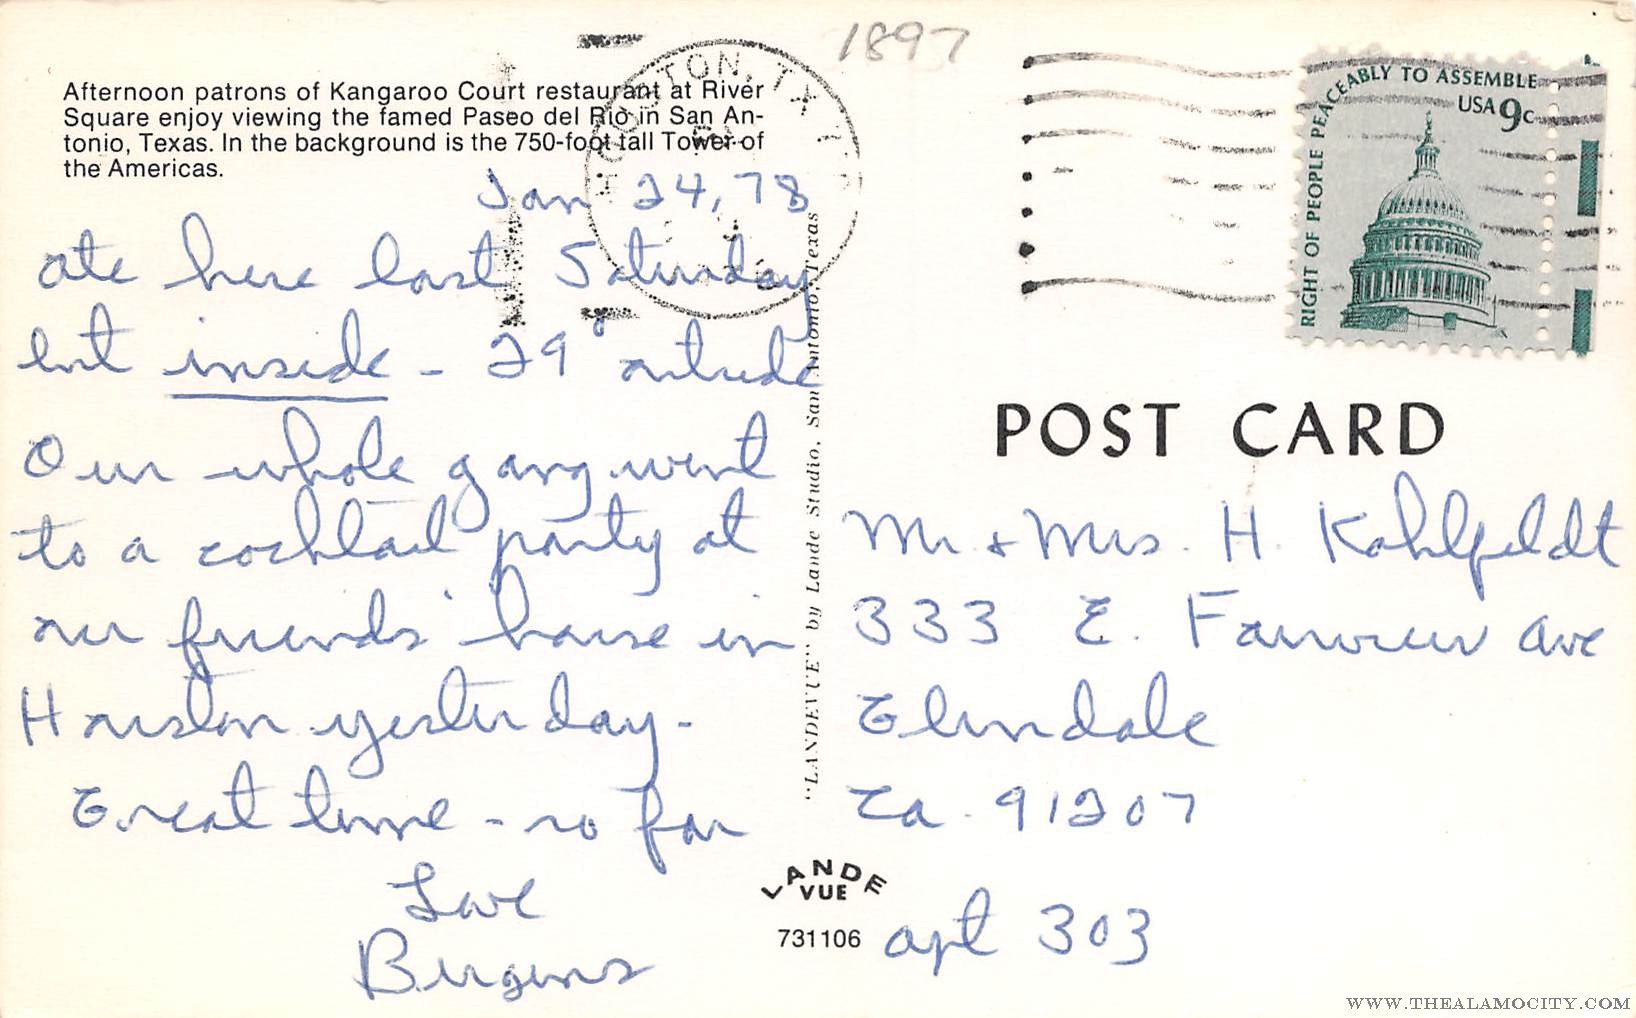 1897
Afternoon patrons of Kangaroo Court restaurant at River
Square enjoy viewing the famed Paseo del Rio in San An-
tonio, Texas. In the background is the 750-foot tall Tower of
the Americas.
Jan 24, 78
ate here last Saturday
but inside - 29° outside
Our whole gang went
to a cocktail party at
our friends' house in
Houston yesterday -
Great time - so far
Love
Burgens
HOUSTON, TX
RIGHT OF PEOPLE PEACEABLY TO ASSEMBLE
USA 9c
POST CARD
Mr. & Mrs. H. Kohlfeldt
333 E. Fairview Ave
Glendale
Ca. 91207
apt 303
"LANDEVUE" by Lande Studio, San Antonio, Texas
LANDE
VUE
731106
WWW.THEALAMOCITY.COM